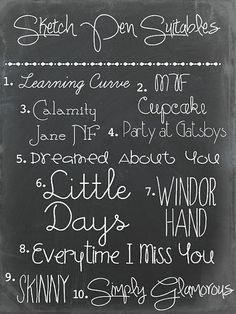 Sketch Pen Suitables
1. Learning Curve
2. MTF Cupcake
3. Calamity Jane NF
4. Party at Gatsbys
5. Dreamed About You
6. Little Days
7. WINDOR HAND
8. Everytime I Miss You
9. SKINNY
10. Simply Glamorous